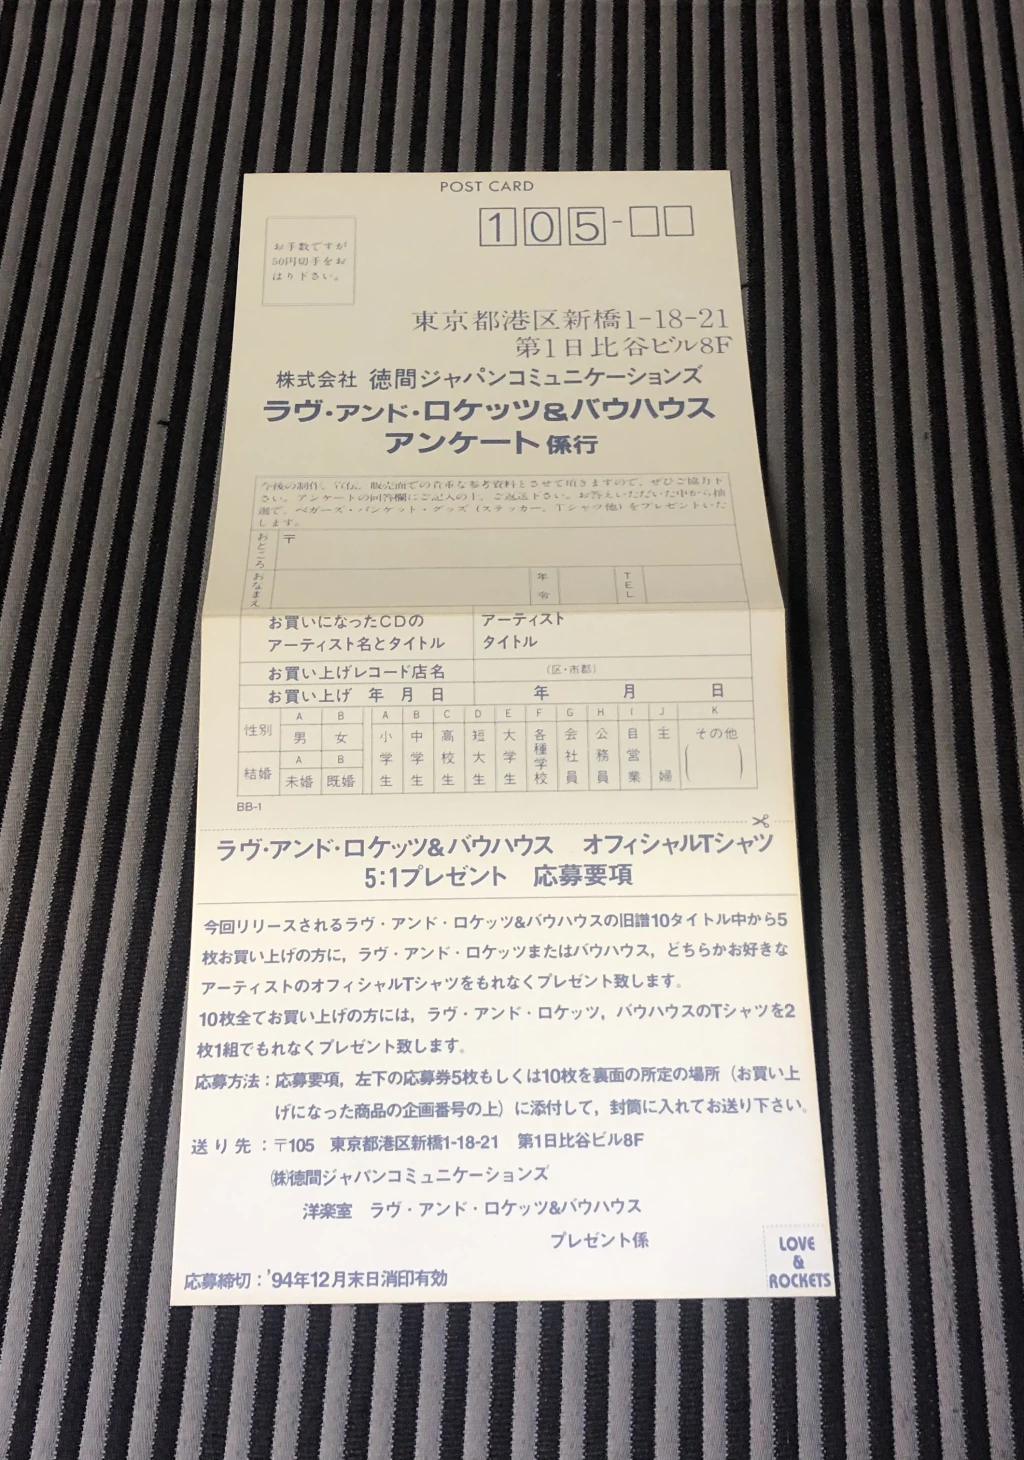 POST CARD
105-
お手数ですが
50円切手をお
はり下さい。
東京都港区新橋1-18-21
第1日比谷ビル8F
株式会社 徳間ジャパンコミュニケーションズ
ラヴ・アンド・ロケッツ&バウハウス
アンケート係行
今後の制作、宣伝、販売面での貴重な参考資料とさせて頂きますので、ぜひご協力下
さい。アンケートの回答欄にご記入の上、ご返送下さい。お答えいただいた中から抽
選で、ベガーズ・バンケット・グッズ（ステッカー、Tシャツ他）をプレゼントいた
します。
おところ 〒
おなまえ 年令 TEL
お買いになったCDの アーティスト
アーティスト名とタイトル タイトル
お買い上げレコード店名 （区・市郡）
お買い上げ 年 月 日 年 月 日
性別 A 男 B 女
結婚 A 未婚 B 既婚
A 小学生 B 中学生 C 高校生 D 短大生 E 大学生 F 各種学校 G 会社員 H 公務員 I 自営業 J 主婦 K その他（ ）
BB-1
ラヴ・アンド・ロケッツ&バウハウス オフィシャルTシャツ
5:1プレゼント 応募要項
今回リリースされるラヴ・アンド・ロケッツ&バウハウスの旧譜10タイトル中から5
枚お買い上げの方に，ラヴ・アンド・ロケッツまたはバウハウス，どちらかお好きな
アーティストのオフィシャルTシャツをもれなくプレゼント致します。
10枚全てお買い上げの方には，ラヴ・アンド・ロケッツ，バウハウスのTシャツを2
枚1組でもれなくプレゼント致します。
応募方法：応募要項，左下の応募券5枚もしくは10枚を裏面の所定の場所（お買い上
げになった商品の企画番号の上）に添付して，封筒に入れてお送り下さい。
送り先：〒105 東京都港区新橋1-18-21 第1日比谷ビル8F
㈱徳間ジャパンコミュニケーションズ
洋楽室 ラヴ・アンド・ロケッツ&バウハウス
プレゼント係
応募締切：'94年12月末日消印有効
LOVE
&
ROCKETS